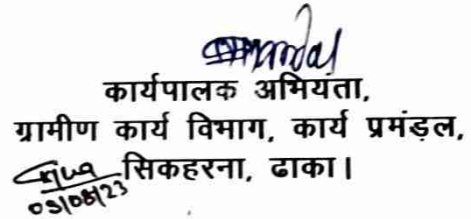 कार्यपालक अभियंता,
ग्रामीण कार्य विभाग, कार्य प्रमंड़ल,
सिकहरना, ढाका।
03/08/23